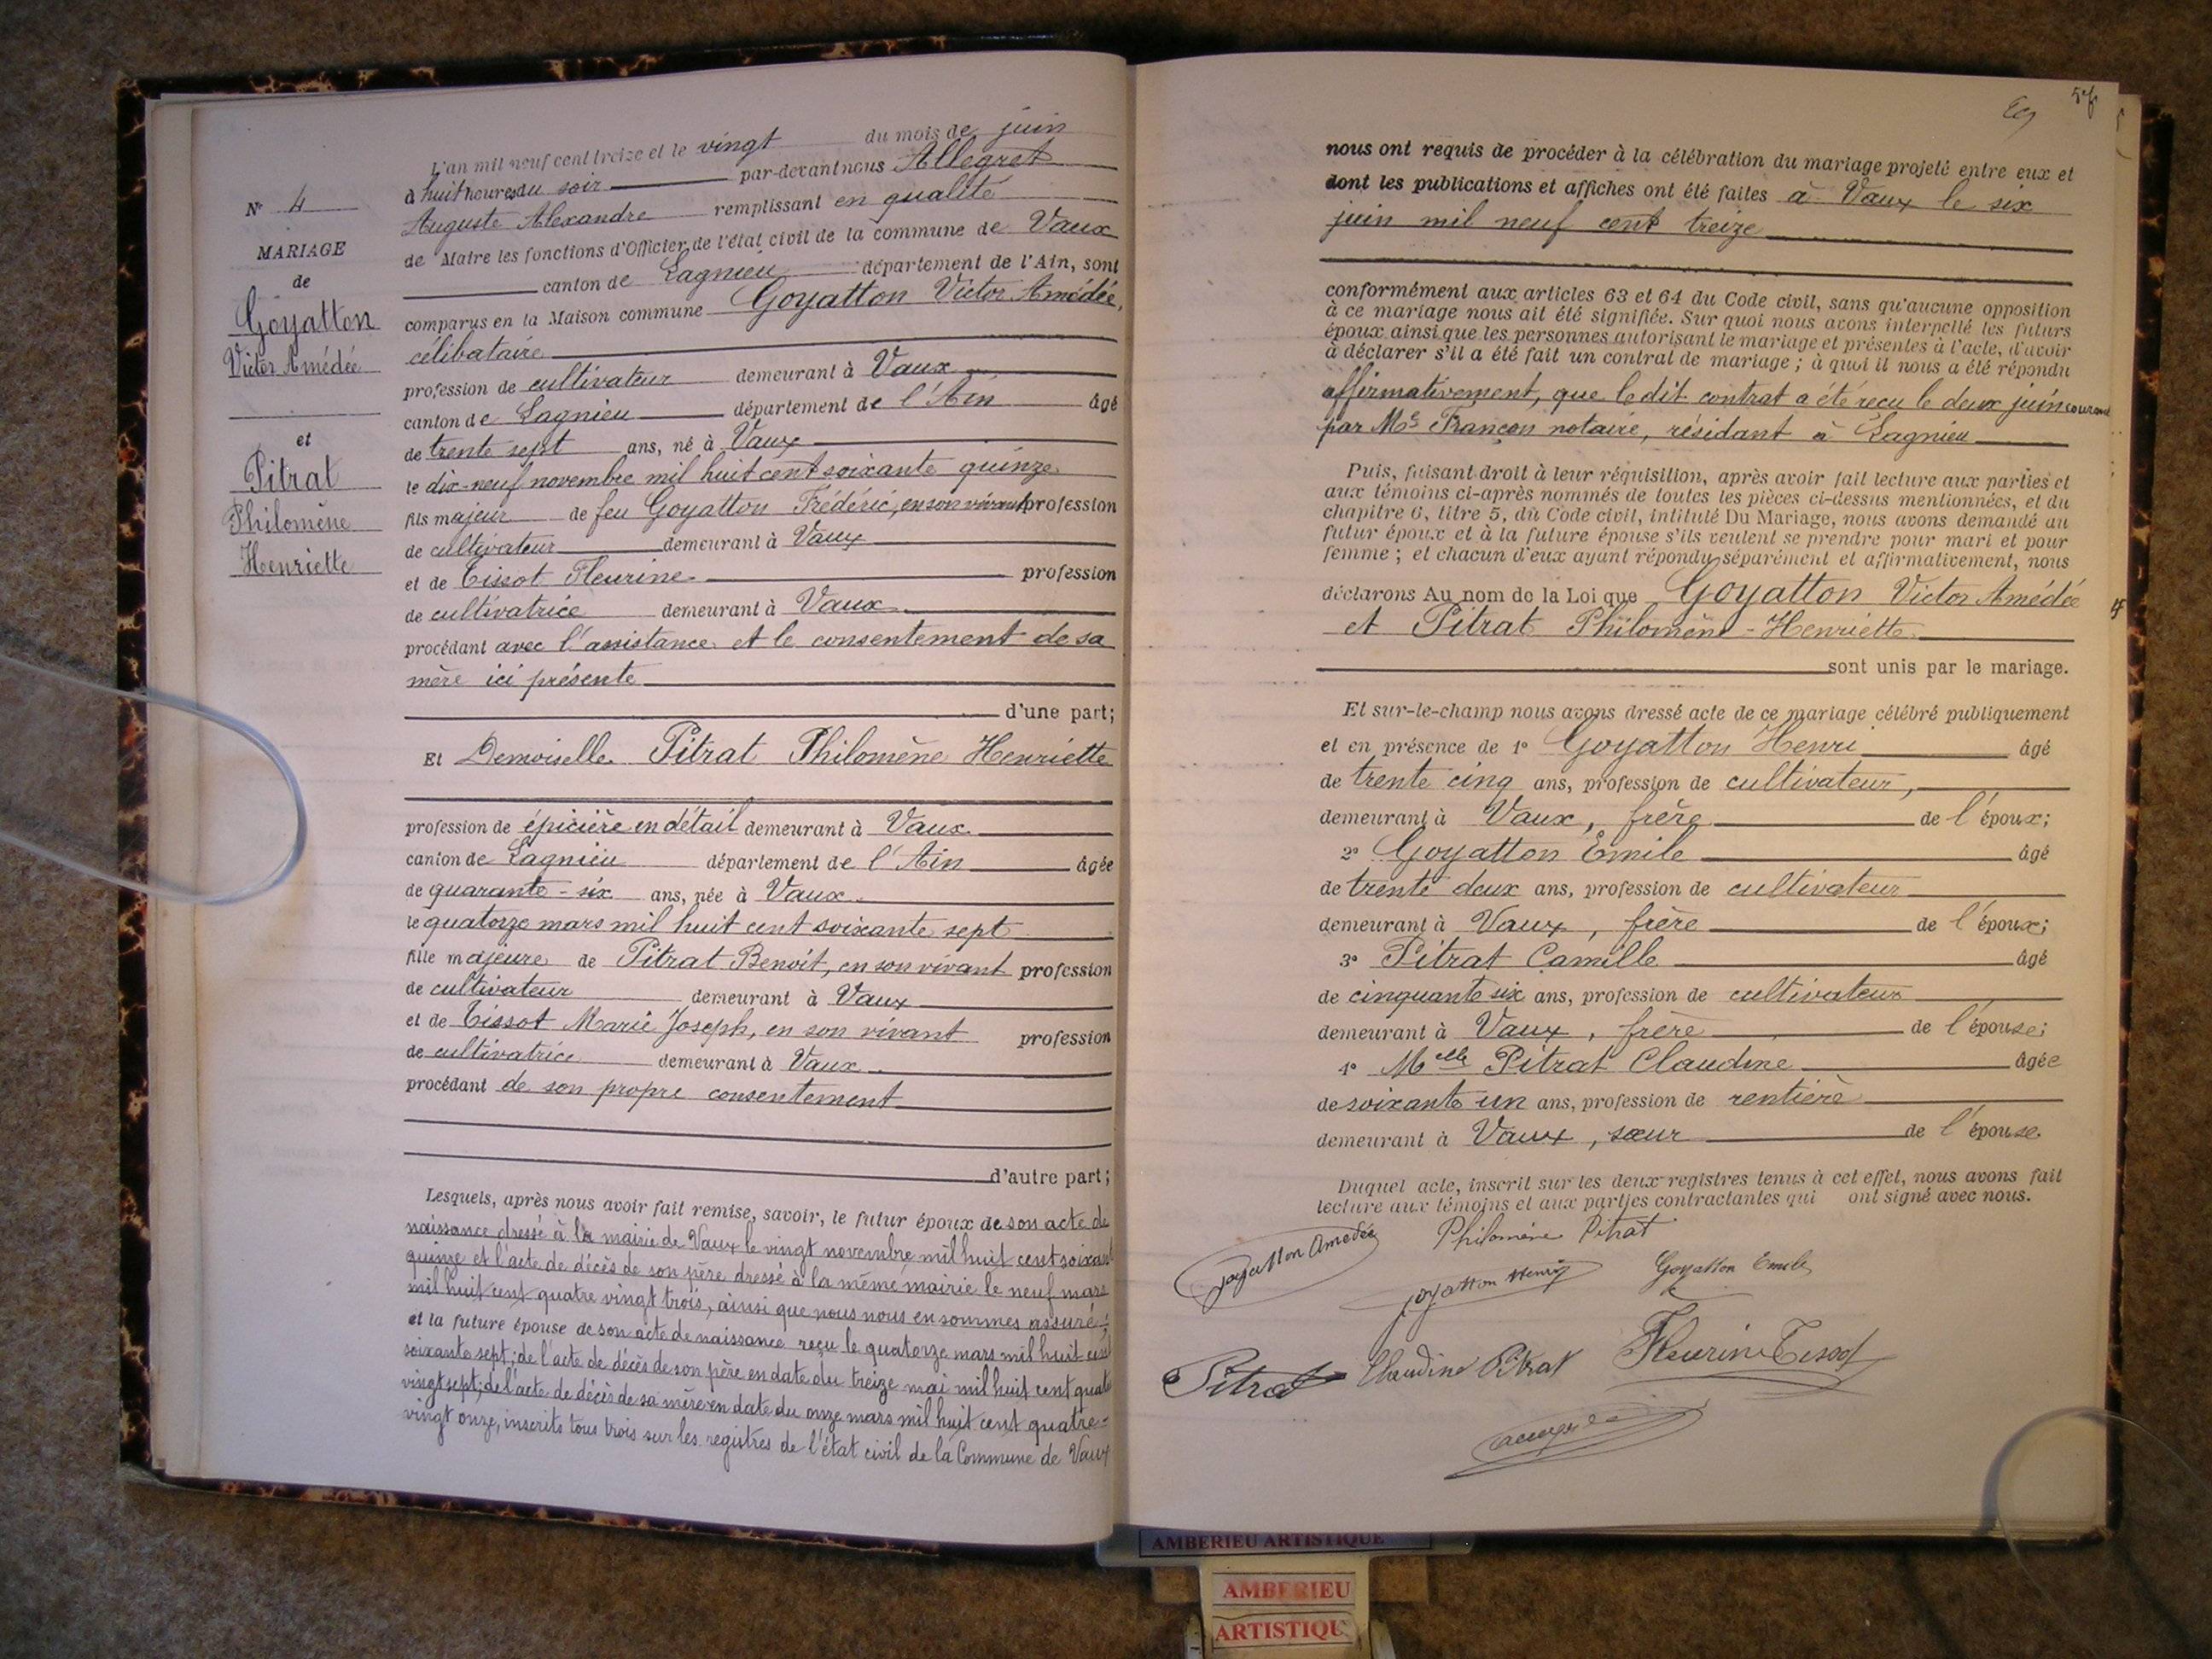 L'an mil neuf cent treize et le vingt du mois de juin
à huit heures du soir par-devant nous Allegret
Auguste Alexandre remplissant en qualité
de Maire les fonctions d'Officier de l'état civil de la commune de Vaux
canton de Lagnieu département de l'Ain, sont
comparus en la Maison commune Goyatton Victor Amédée,
célibataire
profession de cultivateur demeurant à Vaux
canton de Lagnieu département de l'Ain âgé
de trente sept ans, né à Vaux
le dix-neuf novembre mil huit cent soixante quinze
fils majeur de feu Goyatton Frédéric, en son vivant profession
de cultivateur demeurant à Vaux
et de Tissot Fleurine profession
de cultivatrice demeurant à Vaux
procédant avec l'assistance et le consentement de sa
mère ici présente
d'une part;
Et Demoiselle Pitrat Philomène Henriette
profession de épicière en détail demeurant à Vaux
canton de Lagnieu département de l'Ain âgée
de quarante-six ans, née à Vaux
le quatorze mars mil huit cent soixante sept
fille majeure de Pitrat Benoît, en son vivant profession
de cultivateur demeurant à Vaux
et de Tissot Marie Joseph, en son vivant profession
de cultivatrice demeurant à Vaux
procédant de son propre consentement
d'autre part;
Lesquels, après nous avoir fait remise, savoir, le futur époux de son acte de
naissance dressé à la mairie de Vaux le vingt novembre mil huit cent soixante
quinze et l'acte de décès de son père dressé à la même mairie le neuf mars
mil huit cent quatre vingt trois, ainsi que nous nous en sommes assuré;
et la future épouse de son acte de naissance reçu le quatorze mars mil huit cent
soixante sept; de l'acte de décès de son père en date du treize mai mil huit cent quatre
vingt sept; de l'acte de décès de sa mère en date du onze mars mil huit cent quatre-
vingt onze, inscrits tous trois sur les registres de l'état civil de la Commune de Vaux
N° 4
MARIAGE
de
Goyatton
Victor Amédée
et
Pitrat
Philomène
Henriette
nous ont requis de procéder à la célébration du mariage projeté entre eux et
dont les publications et affiches ont été faites à Vaux le six
juin mil neuf cent treize
conformément aux articles 63 et 64 du Code civil, sans qu'aucune opposition
à ce mariage nous ait été signifiée. Sur quoi nous avons interpellé les futurs
époux ainsi que les personnes autorisant le mariage et présentes à l'acte, d'avoir
à déclarer s'il a été fait un contrat de mariage; à quoi il nous a été répondu
affirmativement, que le dit contrat a été reçu le deux juin courant
par Me Françon notaire, résidant à Lagnieu
Puis, faisant droit à leur réquisition, après avoir fait lecture aux parties et
aux témoins ci-après nommés de toutes les pièces ci-dessus mentionnées, et du
chapitre 6, titre 5, du Code civil, intitulé Du Mariage, nous avons demandé au
futur époux et à la future épouse s'ils veulent se prendre pour mari et pour
femme; et chacun d'eux ayant répondu séparément et affirmativement, nous
déclarons Au nom de la Loi que Goyatton Victor Amédée
et Pitrat Philomène-Henriette
sont unis par le mariage.
Et sur-le-champ nous avons dressé acte de ce mariage célébré publiquement
et en présence de 1° Goyatton Henri âgé
de trente cinq ans, profession de cultivateur,
demeurant à Vaux, frère de l'époux;
2° Goyatton Emile âgé
de trente deux ans, profession de cultivateur
demeurant à Vaux, frère de l'époux;
3° Pitrat Camille âgé
de cinquante six ans, profession de cultivateur
demeurant à Vaux, frère de l'épouse;
4° Melle Pitrat Claudine âgée
de soixante un ans, profession de rentière
demeurant à Vaux, sœur de l'épouse.
Duquel acte, inscrit sur les deux registres tenus à cet effet, nous avons fait
lecture aux témoins et aux parties contractantes qui ont signé avec nous.
Goyatton Amedée Philomène Pitrat
goyatton Henri Goyatton Emile
Pitrat Claudine Pitrat Fleurine Tissot
AMBERIEU ARTISTIQUE
AMBERIEU
ARTISTIQU